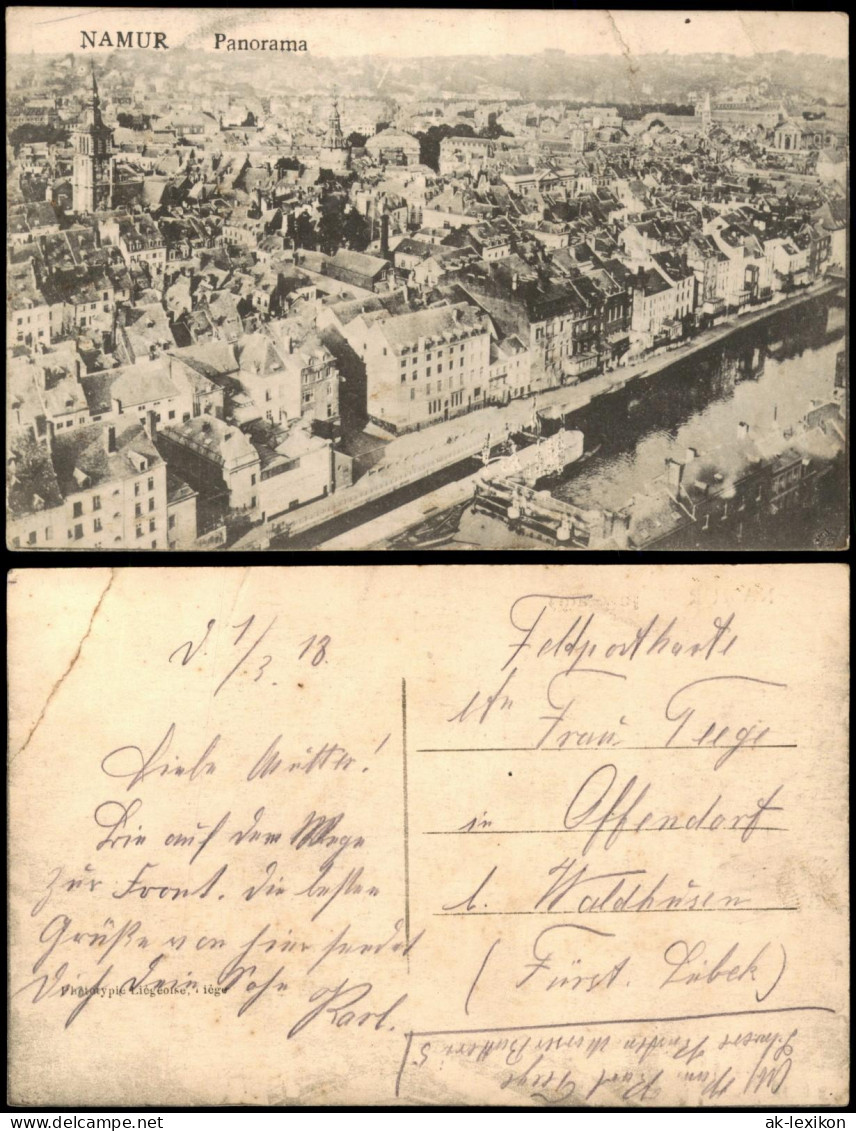 NAMUR Panorama
d. 1/3. 18.
Liebe Mutter!
Bin auf dem Wege
zur Front. Die besten
Grüße von hier sendet
Dich Dein Sohn
Karl.
Phototypie Liégeoise, Liége
Feldpostkarte
An
Frau Teege
in Offendorf
b. Waldhusen
(Fürst. Lübek)
Karl Teege
Schwere
ak-lexikon
ak-lexikon.com